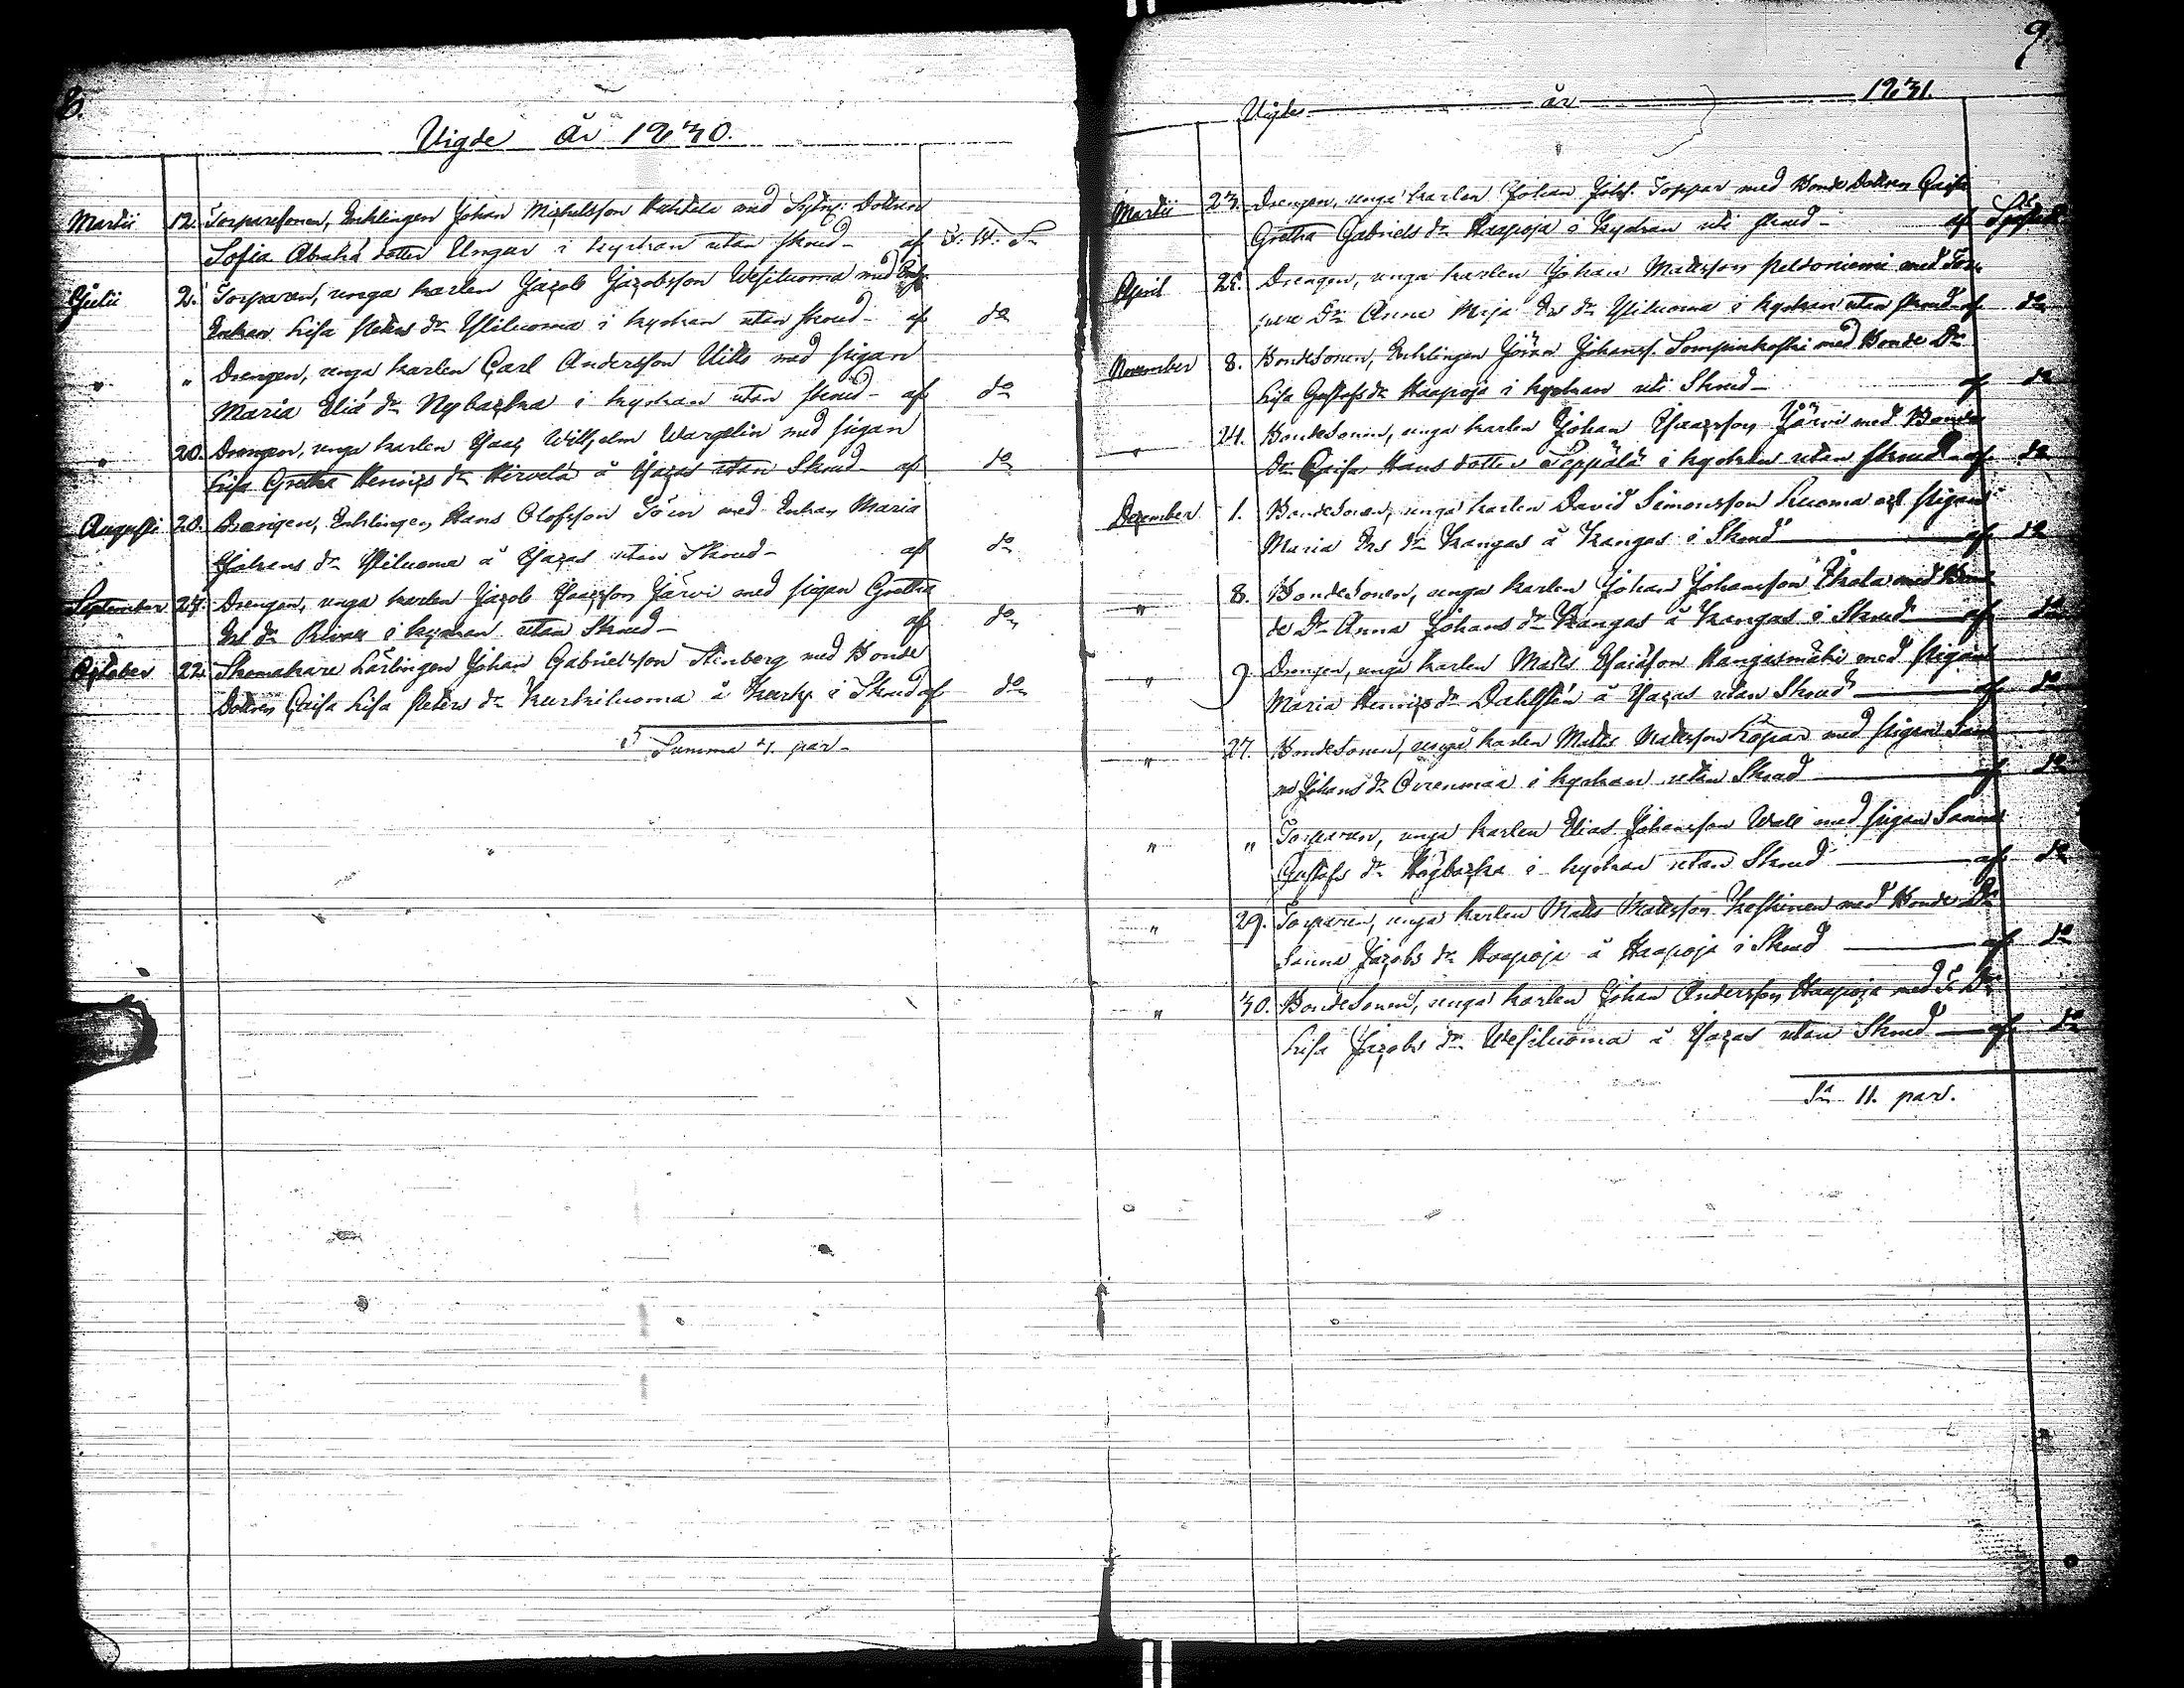 8.
Vigde År 1830.
Martii 12. Torparesonen, Enklingen Johan Michelsson med Sytn: Dottren
Sofia Abrah: dotter Ungar i kyrkan utan skrud - af
Julii 2. Torparen, unga karlen Jacob Jacobsson Wesiluoma med
Enkan Lisa Peters dr Yliluoma i kyrkan utan skrud - af do
" " Drengen, unga karlen Carl Andersson Uitto med pigan
Maria Eliæ dr Nybacka i kyrkan utan skrud - af do
" 20. Drengen, unga karlen Isaac Wilhelm Wargelin med pigan
Lisa Gretha Henrics dr Hirvelä å Ysacas utan Skrud - af do
Augusti 20. Drengen, Enklingen Hans Olofsson Törn med Enkan Maria
Johans dr Yliluoma å Ysacas utan Skrud - af do
September 24. Drengen, unga karlen Jacob Isacsson Järvi med pigan Gretha
Ers dr i kyrkan utan Skrud - af do
October 22. Skomakare Lärlingen Johan Gabrielsson Stenberg med Bonde
Dottren Caisa Lisa Peters dr Kurkiluoma å i Skrud af do
Summa 7. par -
9.
Vigde år 1831.
Martii 23. Drengen, unga karlen Johan Johss. Toppar med Bonde Dottren Caisa
Gretha Gabriels dr Haapoja i kyrkan uti skrud - af
April 24. Drengen, unga karlen Johan Mattsson Peldoniemi med Tor-
pare Dr Anna Maja Ers dr Yliluoma i kyrkan utan skrud af do
November 8. Bondesonen, Enklingen Göran Johanss. Lompinkoski med Bonde Dr
Lisa Gustafs dr Haapoja i kyrkan uti Skrud - af do
" 24. Bondesonen, unga karlen Johan Isaacsson Järvi med Bonde
Dr Caisa Hans dotter Seppälä i kyrkan utan skrud af do
December 1. Bondesonen, unga karlen David Simonsson Luoma och pigan
Maria Ers dr Kangas å Kangas i Skrud af do
" 8. Bondesonen, unga karlen Johan Johansson med Bon-
de Dr Anna Johans dr Kangas å Kangas i Skrud af do
" 9. Drengen, unga karlen Matts Esaiasson Kangasmäki med pigan
Maria Henrics dr Dahlstén å Ysacas utan Skrud af do
" 27. Bondesonen, unga karlen Matts Mattsson Kopar med pigan San-
na Johans dr Orrenmaa i kyrkan utan Skrud af do
" " Torparen, unga karlen Elias Johansson Wall med pigan Sanna
Gustafs dr Högbacka i kyrkan utan Skrud af do
" 29. Torparen, unga karlen Matts Mattsson Keskinen med Bonde Dr
Sanna Jacobs dr Haapoja å Haapoja i Skrud af do
" 30. Bondesonen, unga karlen Johan Andersson Haapoja med T. Dr
Lisa Jacobs dr Wesiluoma å Ysacas utan Skrud af do
Sa 11. par.